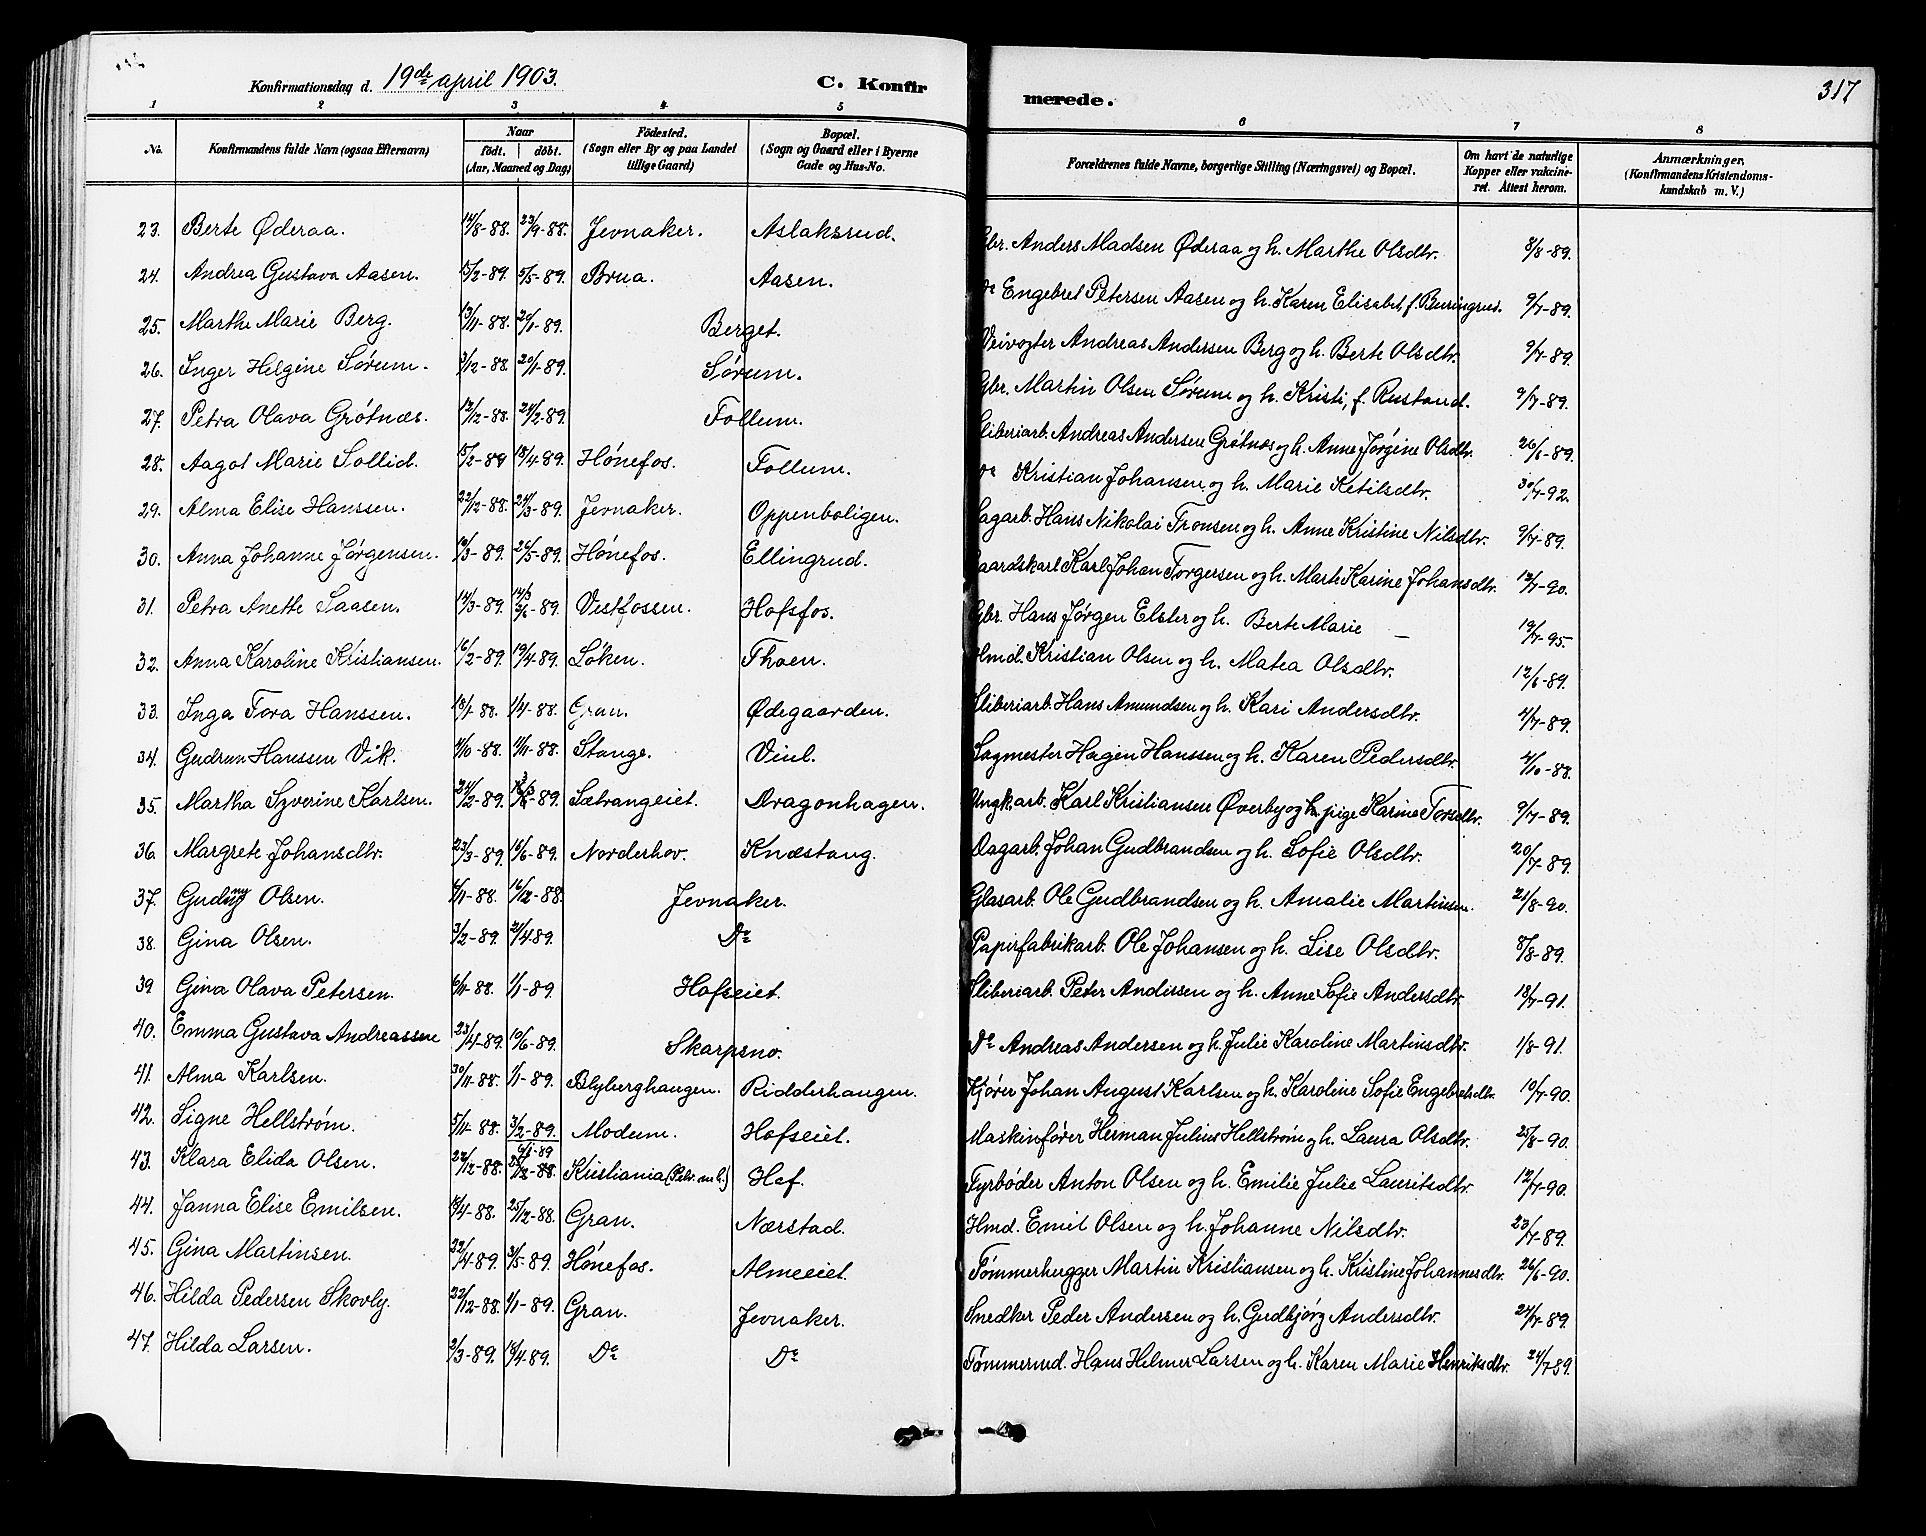 Konfirmationsdag d. 19de april 1903.
C. Konfirmerede.
317
1 2 3 4 5 6 7 8
No. Konfirmandens fulde Navn (ogsaa Efternavn) Naar födt. döbt. (Aar, Maaned og Dag) Födested. (Sogn eller By og paa Landet tillige Gaard) Bopæl. (Sogn og Gaard eller i Byerne Gade og Hus-No. Forældrenes fulde Navne, borgerlige Stilling (Næringsvei) og Bopæl. Om havt de naturlige Kopper eller vakcineret. Attest herom. Anmærkninger. (Konfirmandens Kristendomskundskab m. V.)
23. Berte Øderaa. 14/8-88. 23/9-88. Jevnaker. Aslaksrud. Gbr. Anders Madsen Øderaa og h. Marthe Olsdtr. 8/8-89.
24. Andrea Gustava Aasen. 15/2-89. 5/5-89. Brua. Aasen. Do Engebret Petersen Aasen og h. Karen Elisabet, f. Buringrud. 9/7-89.
25. Marthe Marie Berg. 13/11-88. 20/1-89. Berget. Veivogter Andreas Andersen Berg og h. Berte Olsdtr. 9/7-89.
26. Inger Helgine Sørum. 3/12-88. 20/1-89. Sørum. Gbr. Martin Olsen Sørum og h. Kristi, f. Rustand. 9/7-89.
27. Petra Olava Grötnæs. 12/12-88. 24/2-89. Follum. Sliberiarb. Andreas Andersen Grøtnæs og h. Anne Jørgine Olsdtr. 26/6-89.
28. Aagot Marie Sollid. 15/2-89 18/4-89. Hönefos. Follum. Do Kristian Johansen og h. Marie Ketilsdtr. 30/7-92.
29. Alma Elise Hanssen. 22/12-88. 24/3-89. Jevnaker. Oppenboligen. Sagarb. Hans Nikolai Tronsen og h. Anne Kristine Nilsdtr. 9/7-89.
30. Anna Johanne Jørgensen. 10/3-89. 26/5-89. Hönefos. Ellingrud. Gaardskarl Karl Johan Torgersen og h. Marte Karine Johansdtr. 12/7-90.
31. Petra Anette Saasen. 14/3-89. 14/3 2/6-89. Vestfossen. Hofsfos. Gbr. Hans Jørgen Elster og h. Berte Marie — 19/7-95.
32. Anna Karoline Kristiansen. 16/2-89. 19/4-89. Löken. Thoen. Hmd. Kristian Olsen og h. Matea Olsdtr. 12/6-89.
33. Inga Tora Hanssen. 18/1-88. 1/4-88. Gran. Ødegaarden. Sliberiarb. Hans Amundsen og h. Kari Andersdtr. 4/7-89.
34. Gudrun Hanssen Vik. 4/10-88. 4/11-88. Stange. Viul. Sagmester Hagen Hanssen og h. Karen Pedersdtr. 4/10-88.
35. Martha Syverine Karlsen. 24/2-89. -89. Sætrangeiet. Dragonhagen. Ungkarb. Karl Kristiansen Øverby og pige Karine Torsdtr. 9/7-89.
36. Margrete Johansdtr. 23/3-89. 16/6-89. Norderhov. Knæstang. Dagarb. Johan Gudbrandsen og h. Sofie Olsdtr. 20/7-89.
37. Gudny Olsen. 6/11-88. 16/12-88. Jevnaker. Glasarb. Ole Gudbrandsen og h. Amalie Martinsen. 21/8-90.
38. Gina Olsen. 3/2-89. 21/4 89. Do Papirfabrikarb. Ole Johansen og h. Lise Olsdtr. 8/8-89.
39 Gina Olava Petersen. 6/11-88. 1/1-89. Hofseiet. Sliberiarb. Peter Andersen og h. Anne Sofie Andersdtr. 18/7-91.
40. Emma Gustava Andreassen 23/4-89. 10/6-89. Skarpsno. Do Andreas Andersen og h. Julie Karoline Martinsdtr. 1/8-91.
41. Alma Karlsen. 30/11-88. 1/1-89. Blyberghaugen. Ridderhaugen. Kjører Johan August Karlsen og h. Karoline Sofie Engebretsdtr. 10/7-90.
42. Signe Hellstrøm. 5/11-88. 3/2-89. Modum. Hofseiet. Maskinfører Herman Julius Hellstrøm og h. Laura Olsdtr. 25/8-90.
43. Klara Elida Olsen. 22/12-88. 6/1-89 25/12-88. Kristiania Hof. Fyrbøder Anton Olsen og h. Emilie Julie Lauritsdtr. 12/7-90.
44. Janna Elise Emilsen. 18/4-88. 25/12-88. Gran. Nærstad. Hmd. Emil Olsen og h. Johanne Nilsdtr. 23/7-89.
45. Gina Martinsen. 22/4-89. 3/5-89. Hönefos. Almeeiet. Tømmerhugger Martin Kristiansen og h. Kristine Johannesdtr. 26/6-90.
46. Hilda Pedersen Skovly. 22/12-88. 1/1-89. Gran. Jevnaker. Snedker Peder Andersen og h. Gudbjørg Andersdtr. 24/7-89.
47. Hilda Larsen. 2/3-89. 18/4-89. Do Do Tømmermd. Hans Helmer Larsen og h. Karen Marie Henriksdtr. 24/7 89.